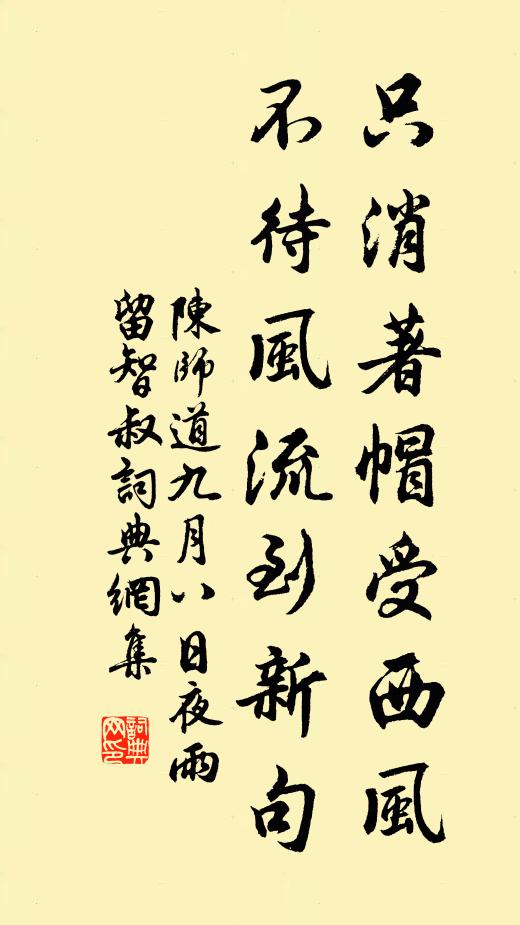 只消著帽受西風
不待風流到新句
陳師道九月八日夜雨
留智叔詞典網集
詞典
網印